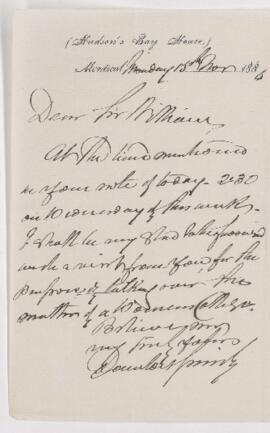 (Hudson's Bay House,)
Montreal, Monday 15th Nov 1886
Dear Sir William,
At the time mentioned
in your note of today - 2.30
on Wednesday of this week
I shall be very glad to be favoured
with a visit from you for the
purpose of talking over the
matter of a Womens College.
Believe me
very truly yours
Donald A Smith